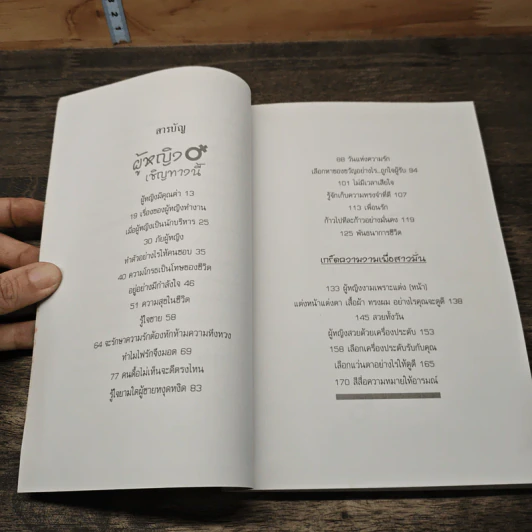 สารบัญ
ผู้หญิง
เชิญทางนี้
ผู้หญิงมีคุณค่า 13
19 เรื่องของผู้หญิงทำงาน
เมื่อผู้หญิงเป็นนักบริหาร 25
30 ภัยผู้หญิง
ทำตัวอย่างไรให้คนชอบ 35
40 ความโกรธเป็นโทษของชีวิต
อยู่อย่างมีกำลังใจ 46
51 ความสุขในชีวิต
รู้ใจชาย 58
64 จะรักษาความรักต้องหักห้ามความหึงหวง
ทำไมไฟรักจึงมอด 69
77 คนดื้อไม่เห็นจะดีตรงไหน
รู้ใจยามใดผู้ชายหงุดหงิด 83
88 วันแห่งความรัก
เลือกหาของขวัญอย่างไร...ถูกใจผู้รับ 94
101 ไม่มีเวลาเสียใจ
รู้จักเก็บความทรงจำที่ดี 107
113 เพื่อนรัก
ก้าวไปทีละก้าวอย่างมั่นคง 119
125 พันธนาการชีวิต
เกร็ดความงามเพื่อสาวมั่น
133 ผู้หญิงงามเพราะแต่ง (หน้า)
แต่งหน้าแต่งตา เสื้อผ้า ทรงผม อย่างไรคุณจะดูดี 138
145 สวยทั้งวัน
ผู้หญิงสวยด้วยเครื่องประดับ 153
158 เลือกเครื่องประดับรับกับคุณ
เลือกแว่นตาอย่างไรให้ดูดี 165
170 สีสื่อความหมายให้อารมณ์